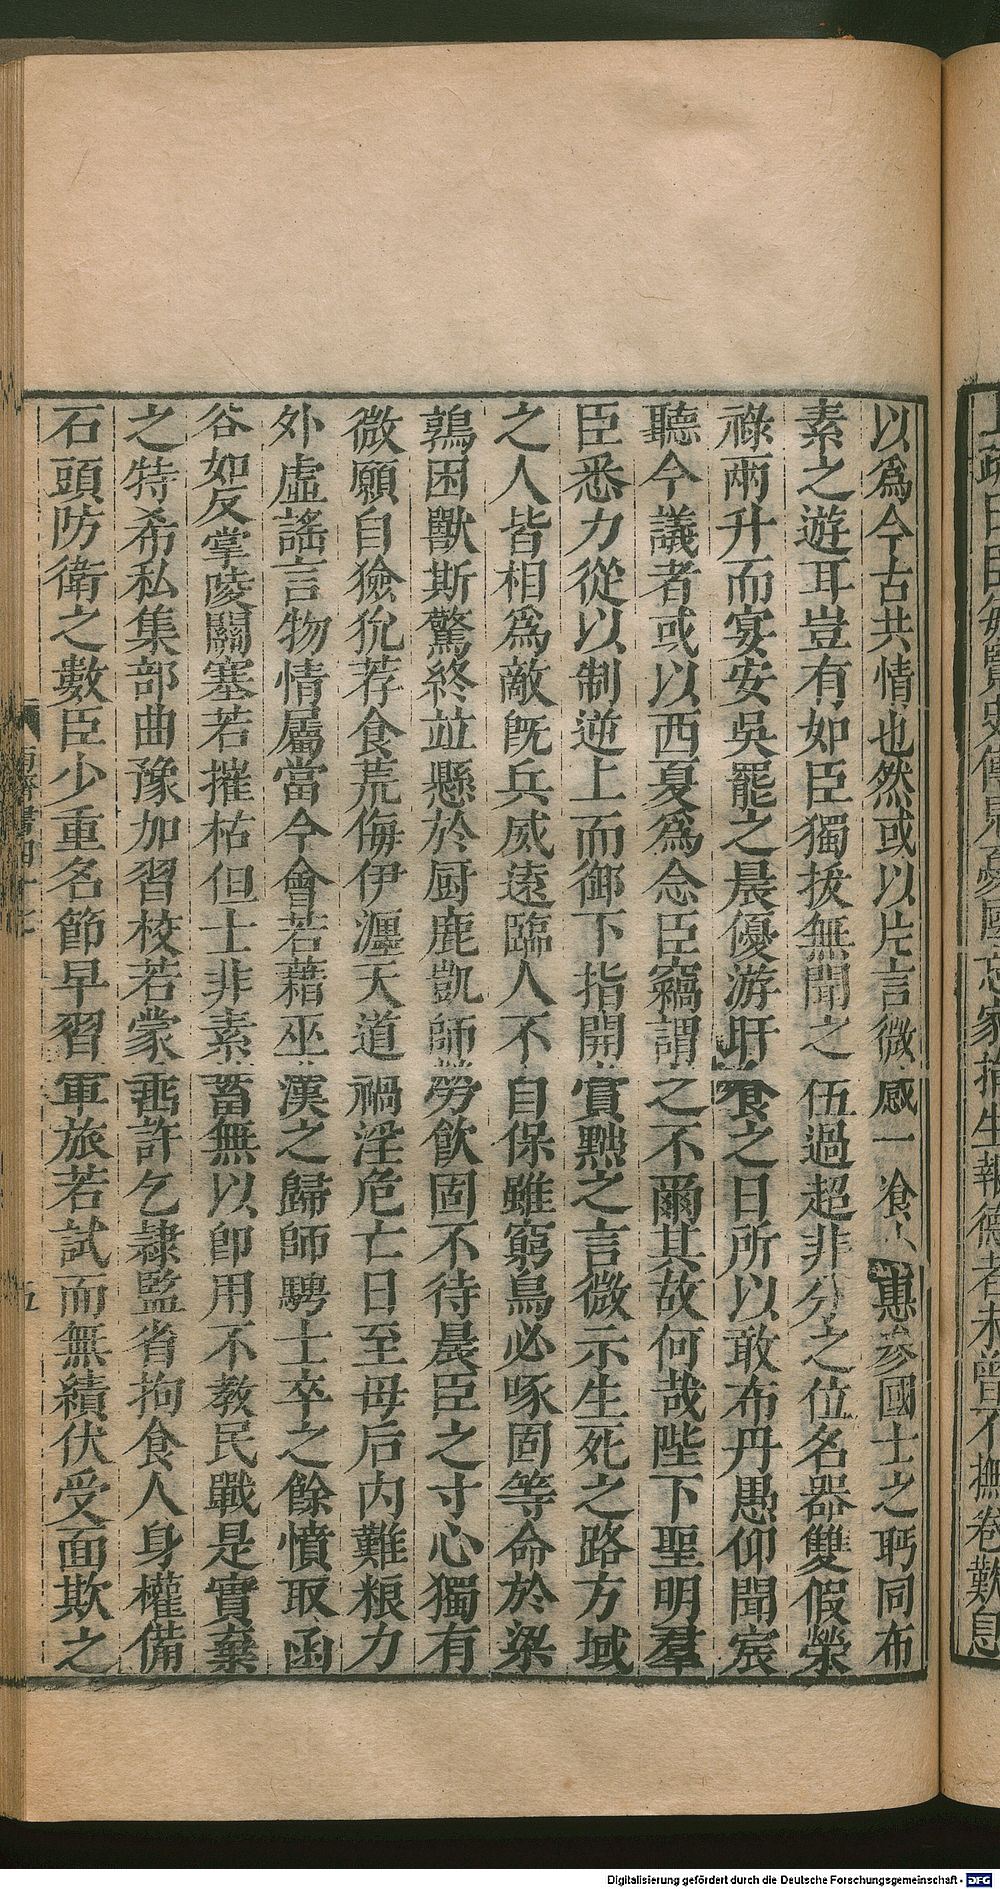 以爲今古共情也然或以片言微感一飡小惠參國士之眄同布
素之遊耳豈有如臣獨拔無聞之伍過超非分之位名器雙假榮
祿兩升而宴安吳罷之晨優游旰食之日所以敢布丹愚仰聞宸
聽今議者或以西夏爲念臣竊謂之不爾其故何哉陛下聖明羣
臣悉力從以制逆上而御下指開賞黜之言微示生死之路方域
之人皆相爲敵旣兵威遠臨人不自保雖窮鳥必啄固等命於梁
鶉困獸斯驚終並懸於厨鹿凱師勞飲固不待晨臣之寸心獨有
微願自獫狁荐食荒侮伊瀍天道禍淫危亡日至母后内難粮力
外虛謠言物情屬當今會若藉巫漢之歸師騁士卒之餘憤取函
谷如反掌陵關塞若摧枯但士非素蓄無以卽用不教民戰是實棄
之特希私集部曲豫加習校若蒙垂許乞隷監省拘食人身權備
石頭防衛之數臣少重名節早習軍旅若試而無績伏受面欺之
南齊書四十七
五
上疏曰臣每覽史傳見憂國忘家捐生報德者未曾不撫卷歎息
Digitalisierung gefördert durch die Deutsche Forschungsgemeinschaft - DFG